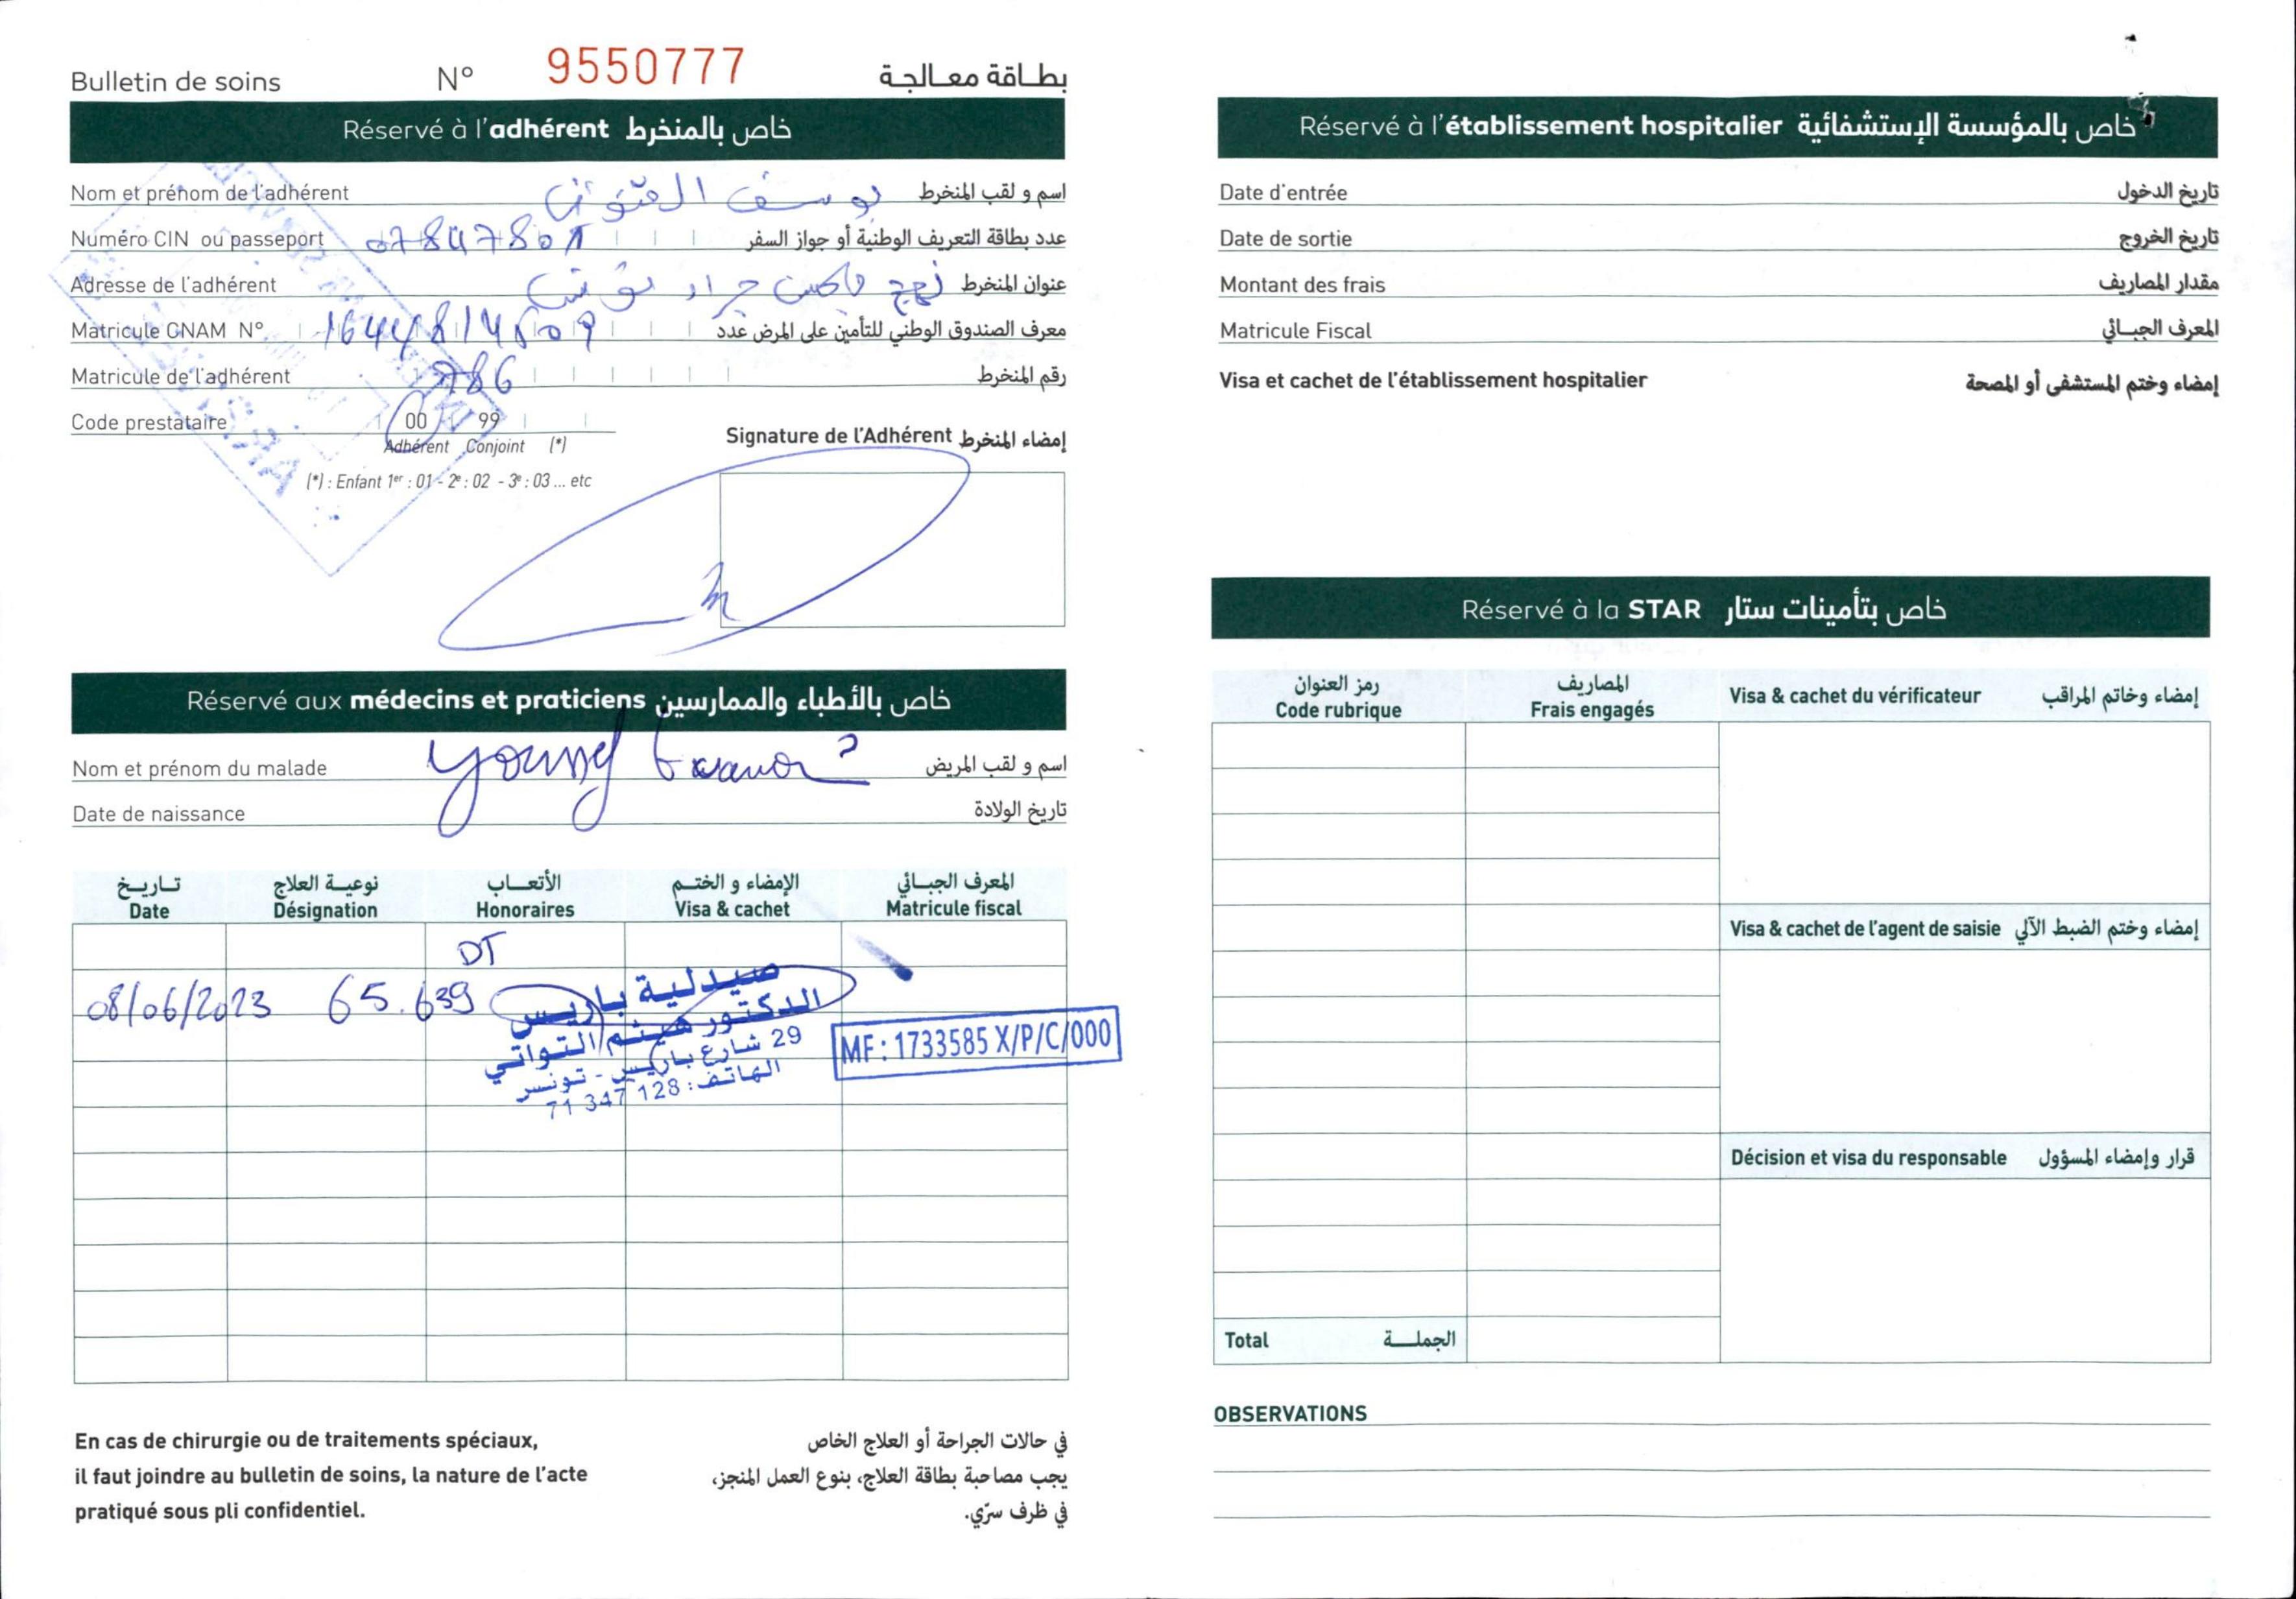 Bulletin de soins N° 9550777 بطاقة معالجة
Réservé à l'adhérent خاص بالمنخرط
Nom et prénom de l'adhérent يوسف اسم و لقب المنخرط
Numéro CIN ou passeport 07847801 عدد بطاقة التعريف الوطنية أو جواز السفر
Adresse de l'adhérent نهج جراد تونس عنوان المنخرط
Matricule CNAM N° معرف الصندوق الوطني للتأمين على المرض عدد
Matricule de l'adhérent 786 رقم المنخرط
Code prestataire 00 99
Adhérent Conjoint (*)
(*) : Enfant 1er : 01 - 2e : 02 - 3e : 03 ... etc
Signature de l'Adhérent إمضاء المنخرط
Réservé aux médecins et praticiens خاص بالأطباء والممارسين
Nom et prénom du malade Youssef اسم و لقب المريض
Date de naissance تاريخ الولادة
تاريخ نوعية العلاج الأتعاب الإمضاء و الختم المعرف الجبائي
Date Désignation Honoraires Visa & cachet Matricule fiscal
DT
08/06/2023 65.639
صيدلية باريس
الدكتور هيثم التواتي
29 شارع باريس - تونس
الهاتف: 71 347 128
MF: 1733585 X/P/C/000
En cas de chirurgie ou de traitements spéciaux,
il faut joindre au bulletin de soins, la nature de l'acte
pratiqué sous pli confidentiel.
في حالات الجراحة أو العلاج الخاص
يجب مصاحبة بطاقة العلاج، بنوع العمل المنجز،
في ظرف سرّي.
Réservé à l'établissement hospitalier خاص بالمؤسسة الإستشفائية
Date d'entrée تاريخ الدخول
Date de sortie تاريخ الخروج
Montant des frais مقدار المصاريف
Matricule Fiscal المعرف الجبائي
Visa et cachet de l'établissement hospitalier إمضاء وختم المستشفى أو المصحة
Réservé à la STAR خاص بتأمينات ستار
رمز العنوان المصاريف
Code rubrique Frais engagés
Visa & cachet du vérificateur إمضاء وخاتم المراقب
Visa & cachet de l'agent de saisie إمضاء وختم الضبط الآلي
Décision et visa du responsable قرار وإمضاء المسؤول
Total الجملة
OBSERVATIONS